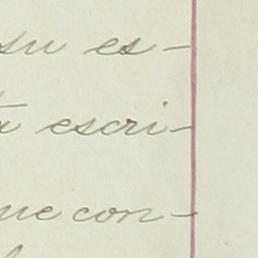 su es-
escri-
con-